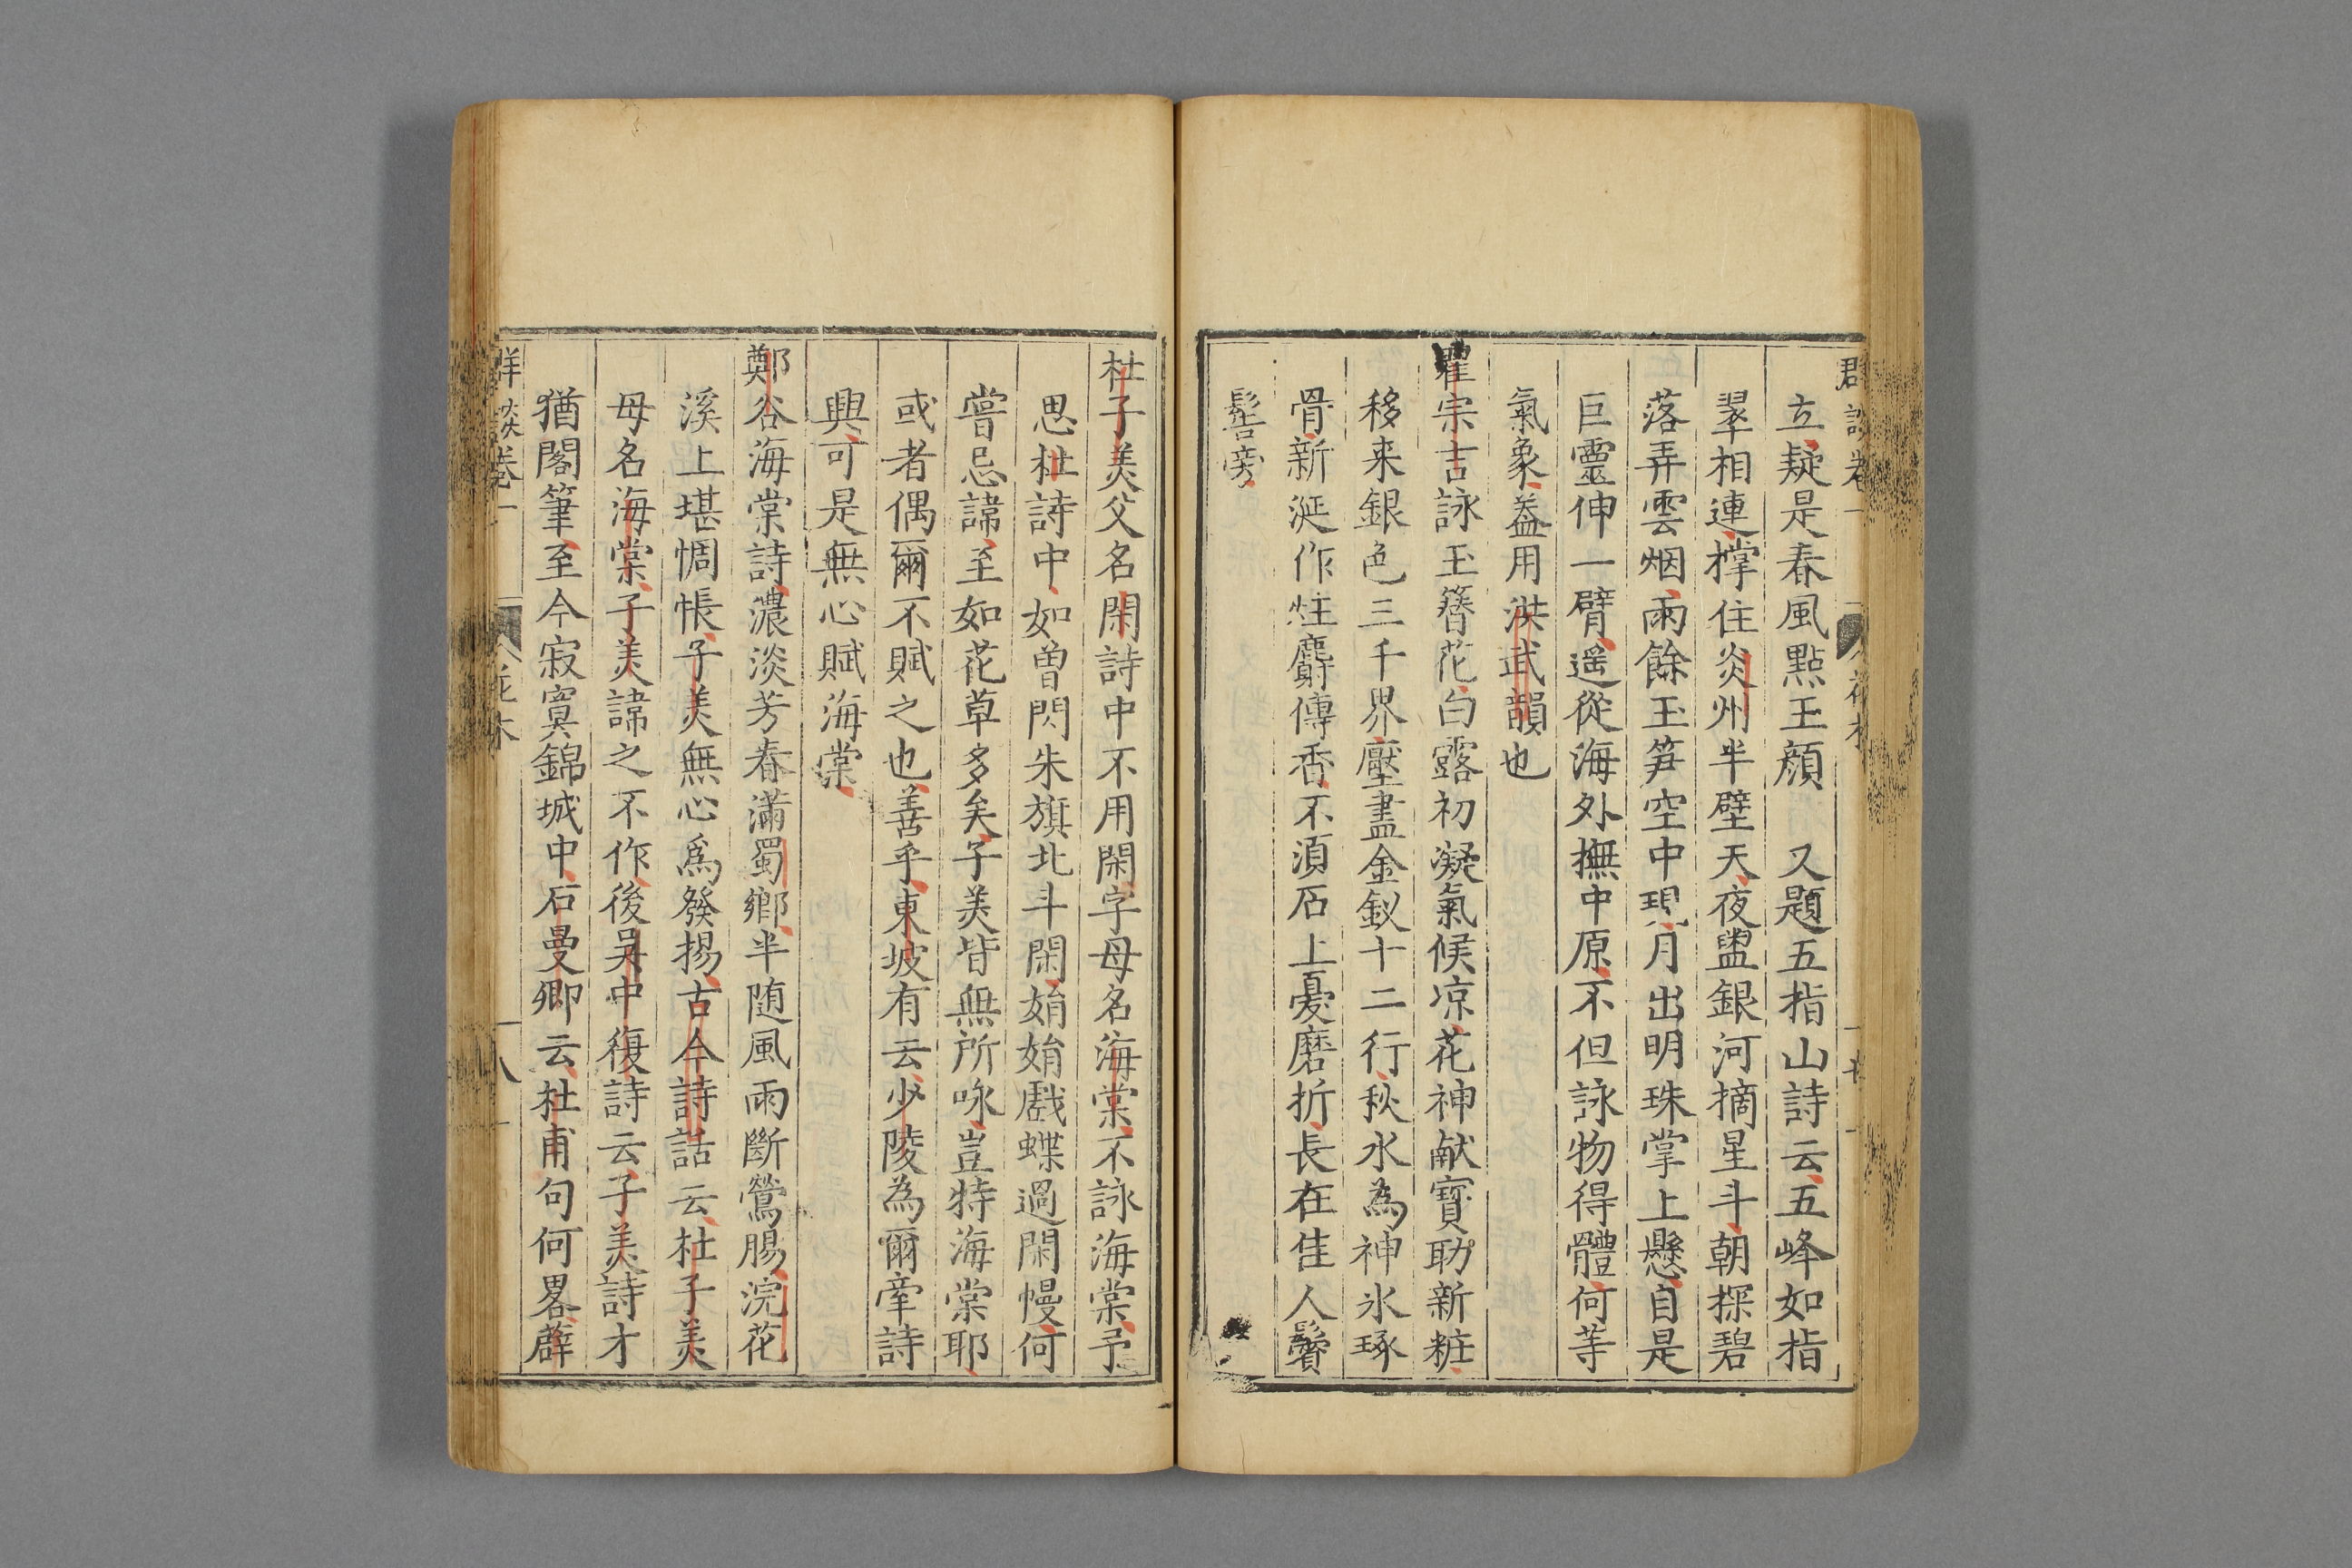 立疑是春風點王顏 又題五指山詩云五峰如指
翠相連撑住炎州半壁天夜盥銀河摘星斗朝探碧
落弄雲烟雨餘玉笋空中現月出明珠掌上懸自是
巨靈伸一臂遥從海外撫中原不但詠物得體何等
氣象葢用洪武韻也
瞿宗吉詠玉簪花白露初凝氣候凉花神献寶助新粧
移来銀色三千界壓盡金釵十二行秋水為神氷琢
骨新涎作炷麝傳香不湏石上憂磨折長在佳人鬢
髻旁
杜子美父名閑詩中不用閑字母名海棠不詠海棠予
思杜詩中如曽閃朱旗北斗閑娟娟戲蝶過閑幔何
嘗忌諱至如花草多矣子美皆無所咏豈特海棠耶
或者偶爾不賦之也善乎東坡有云少陵為爾牽詩
興可是無心賦海棠
鄭谷海棠詩濃淡芳春滿蜀鄉半随風雨斷鶯腸浣花
溪上堪惆悵子美無心爲發揚古今詩話云杜子美
母名海棠子美諱之不作後吴中復詩云子美詩才
猶閣筆至今寂寞錦城中石曼卿云杜甫句何畧薛